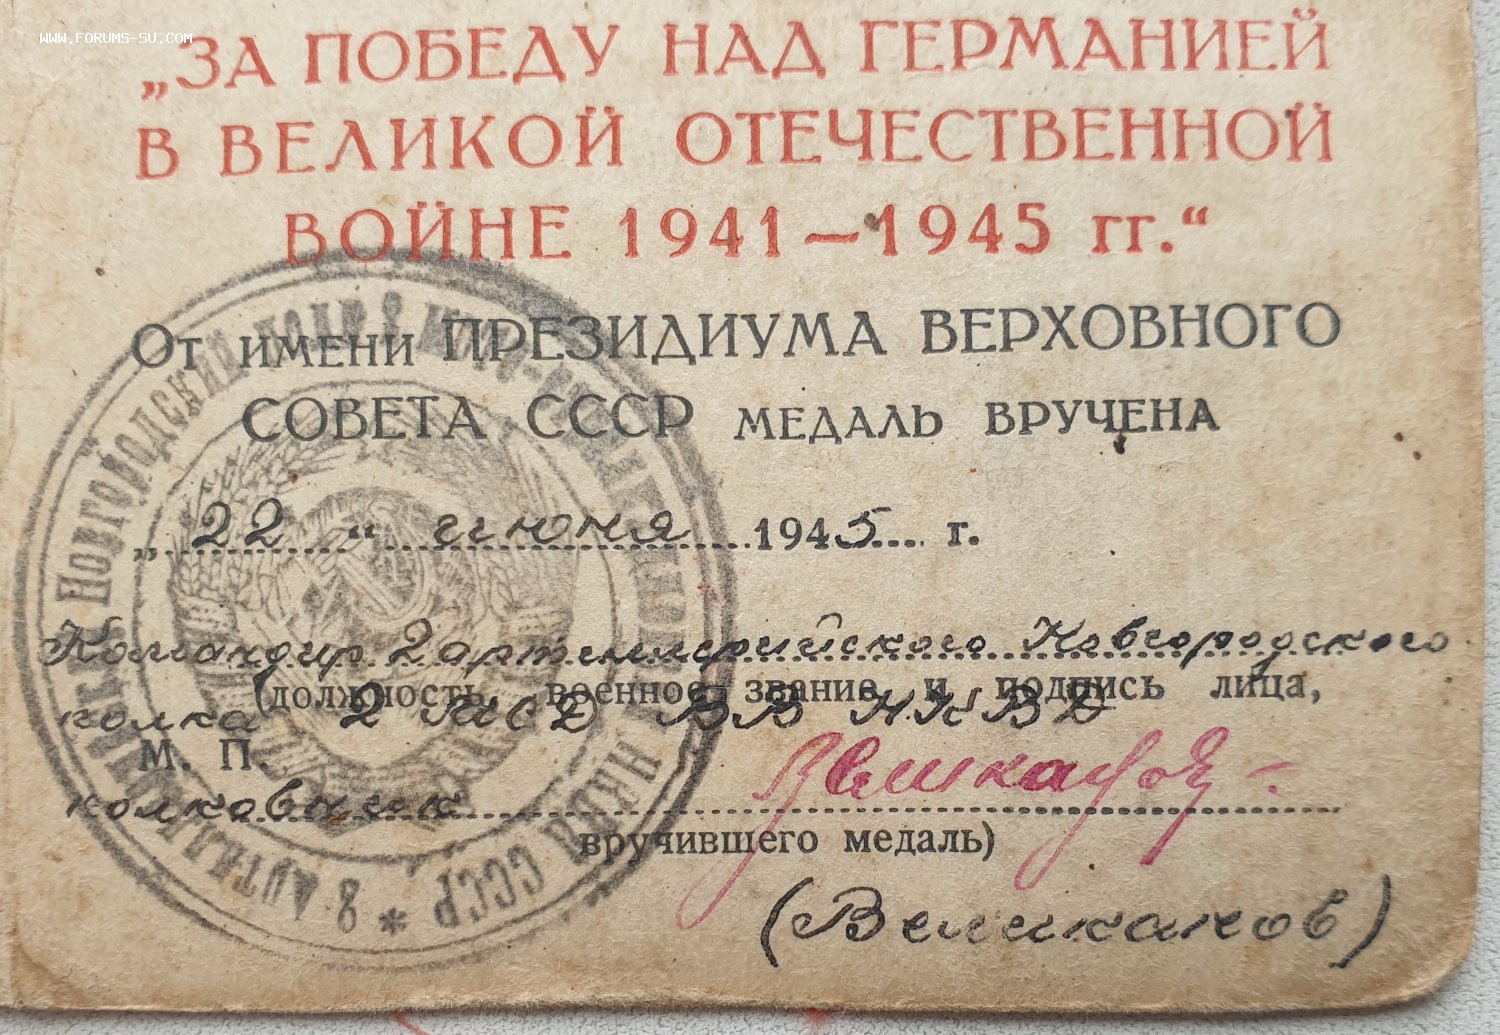 WWW.FORUMS-SU.COM
„ЗА ПОБЕДУ НАД ГЕРМАНИЕЙ
В ВЕЛИКОЙ ОТЕЧЕСТВЕННОЙ
ВОЙНЕ 1941—1945 гг.“
От имени ПРЕЗИДИУМА ВЕРХОВНОГО
СОВЕТА СССР МЕДАЛЬ ВРУЧЕНА
„22“ июня 1945 г.
Командир 2 артиллерийского Новгородского
(должность, военное звание и подпись лица,
полка 2 АСД ВВ НКВД
М. П.
полковник
вручившего медаль)
(Великанов)
Новгородский полк
НКВД СССР